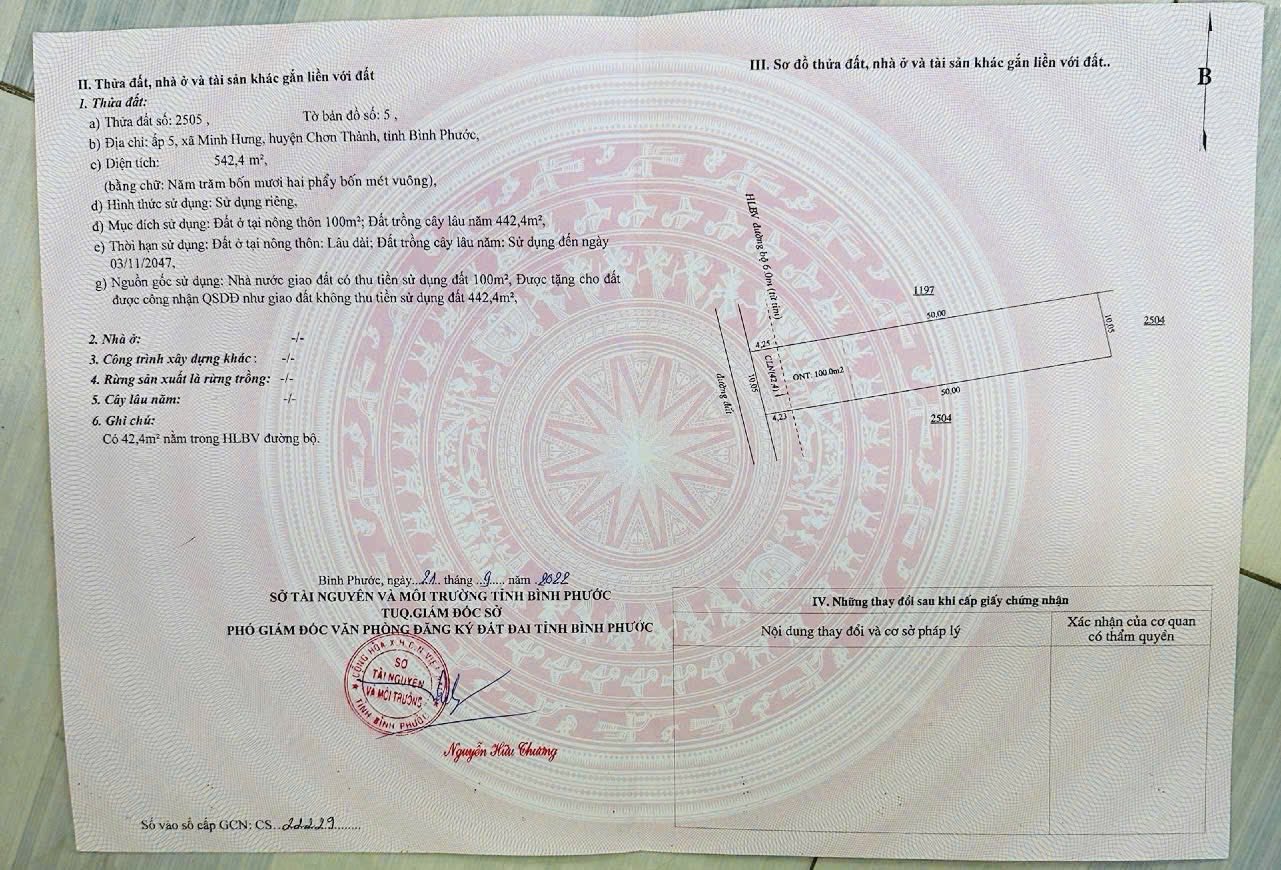 II. Thửa đất, nhà ở và tài sản khác gắn liền với đất
1. Thửa đất:
a) Thửa đất số: 2505 , Tờ bản đồ số: 5 ,
b) Địa chỉ: ấp 5, xã Minh Hưng, huyện Chơn Thành, tỉnh Bình Phước,
c) Diện tích: 542,4 m²,
(bằng chữ: Năm trăm bốn mươi hai phẩy bốn mét vuông),
d) Hình thức sử dụng: Sử dụng riêng,
đ) Mục đích sử dụng: Đất ở tại nông thôn 100m²; Đất trồng cây lâu năm 442,4m²,
e) Thời hạn sử dụng: Đất ở tại nông thôn: Lâu dài; Đất trồng cây lâu năm: Sử dụng đến ngày
03/11/2047,
g) Nguồn gốc sử dụng: Nhà nước giao đất có thu tiền sử dụng đất 100m², Được tặng cho đất
được công nhận QSDĐ như giao đất không thu tiền sử dụng đất 442,4m²,
2. Nhà ở: -/-
3. Công trình xây dựng khác : -/-
4. Rừng sản xuất là rừng trồng: -/-
5. Cây lâu năm: -/-
6. Ghi chú:
Có 42,4m² nằm trong HLBV đường bộ.
Bình Phước, ngày...21.. tháng ..9..... năm .2022
SỞ TÀI NGUYÊN VÀ MÔI TRƯỜNG TỈNH BÌNH PHƯỚC
TUQ.GIÁM ĐỐC SỞ
PHÓ GIÁM ĐỐC VĂN PHÒNG ĐĂNG KÝ ĐẤT ĐAI TỈNH BÌNH PHƯỚC
CỘNG HÒA X.H.C.N VIỆT NAM
SỞ
TÀI NGUYÊN
VÀ MÔI TRƯỜNG
TỈNH BÌNH PHƯỚC
Nguyễn Hữu Chương
Số vào sổ cấp GCN: CS...22229........
III. Sơ đồ thửa đất, nhà ở và tài sản khác gắn liền với đất..
B
HLBV đường bộ 6.0m (từ tim)
1197
50,00
10,05
2504
4,25
CLN(42.4)
10,05
ONT: 100.0m2
đường đất
4,23
50,00
2504
IV. Những thay đổi sau khi cấp giấy chứng nhận
Nội dung thay đổi và cơ sở pháp lý
Xác nhận của cơ quan
có thẩm quyền